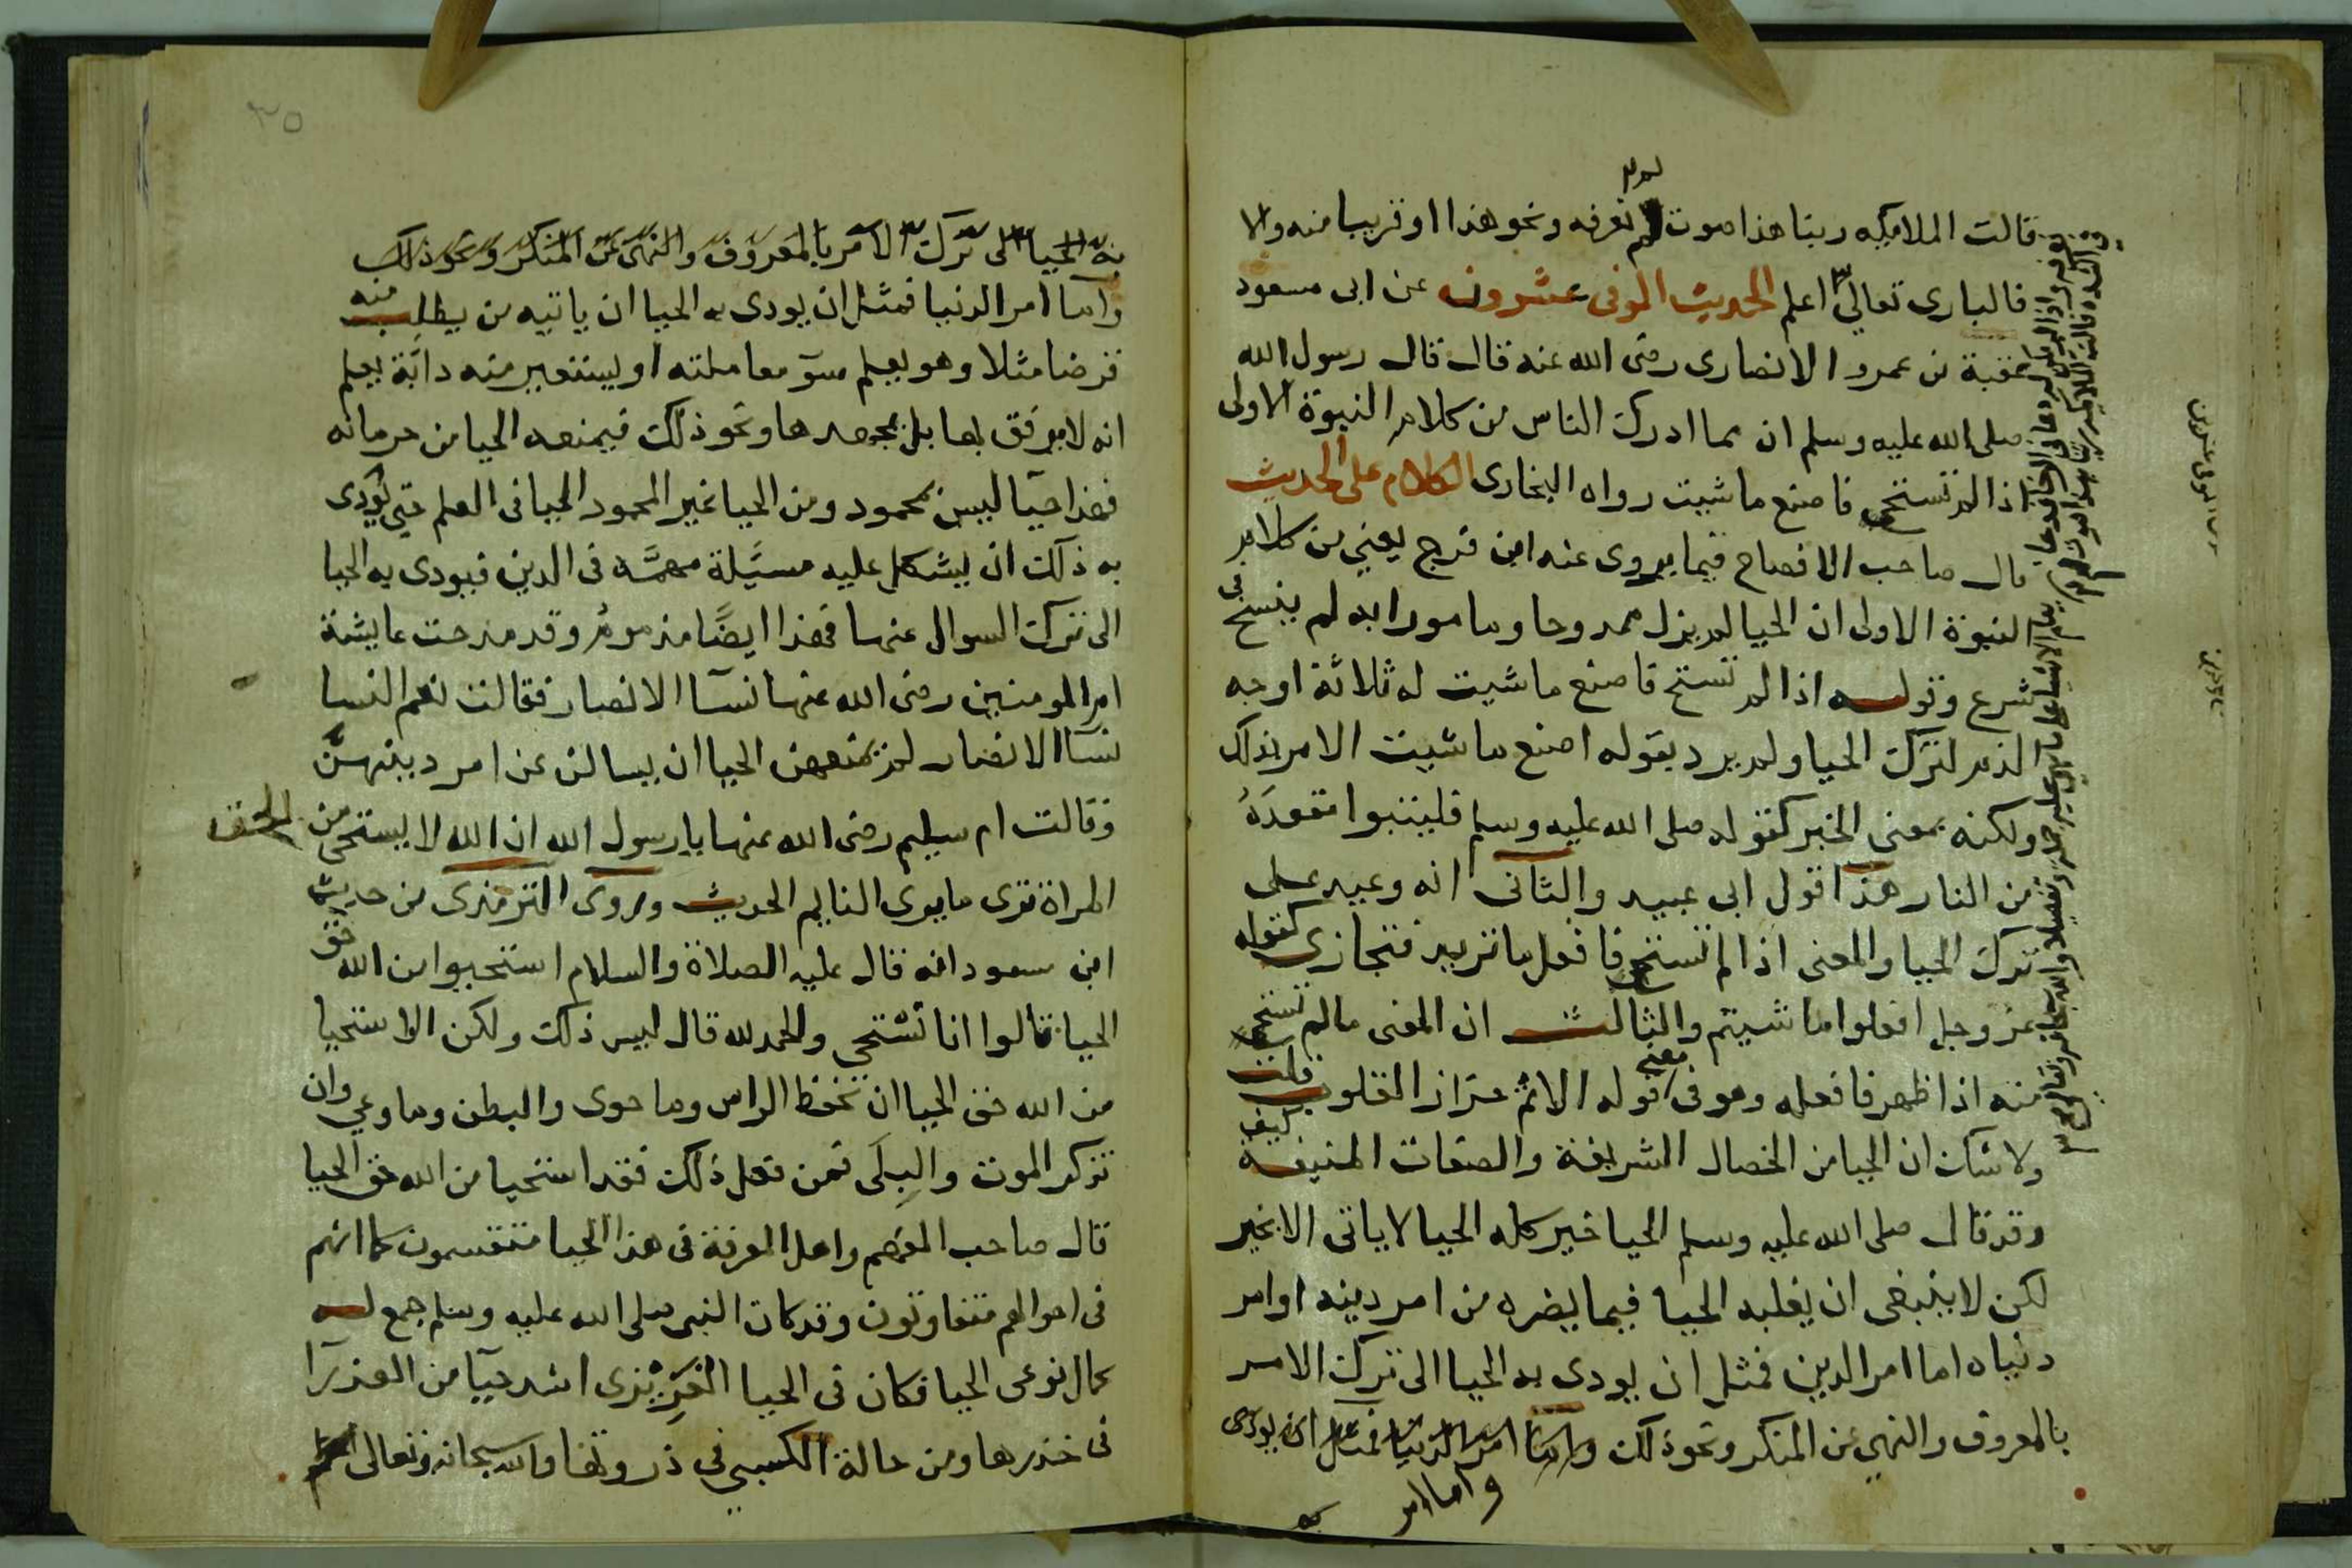 قالت الملايكه ربنا هذا صوت لم نعرفه ونحو هذا او قريبا منه والا
فالبارى تعالى اعلم الحديث الموفى عشرون عن ابى مسعود
عقبة بن عمرو الانصارى رضى الله عنه قال قال رسول الله
صلى الله عليه وسلم ان مما ادرك الناس من كلام النبوة الاولى
اذا لم تستحى فاصنع ما شيت رواه البخارى الكلام على الحديث
قال صاحب الافصاح فيما يروى عنه ابن فرج يعني من كلام
النبوة الاولى ان الحيا لم يزل ممدوحا ومامورا به لم ينسخ فى
شرع وقوله اذا لم تستح فاصنع ما شيت له ثلاثة اوجه
الذم لترك الحيا ولم يرد بقوله اصنع ما شيت الامر بذلك
ولكنه بمعنى الخبر كقوله صلى الله عليه وسلم فليتبوا مقعده
من النار هذا قول ابى عبيد والثانى انه وعيد على
ترك الحيا والمعنى اذا لم تستحى فافعل ما تريد فتجازى كقوله
عز وجل افعلوا ما شيتم والثالث ان المعنى مالم تستحى
منه اذا ظهر فافعله وهو فى معنى قوله الاثم حزاز القلوب قلت
ولا شك ان الحيا من الخصال الشريفة والصفات المنيفة كيف
وقد قال صلى الله عليه وسلم الحيا خير كله الحيا لا ياتى الا بخير
لكن لا ينبغى ان يغلبه الحيا فيما يضره من امر دينه او امر
دنياه اما امر الدين فمثل ان يودى به الحيا الى ترك الامر
بالمعروف والنهى عن المنكر ونحو ذلك واما امر الدنيا فمثل ان يودى
واما امر
به
٣٥
به الحيا الى ترك الامر بالمعروف والنهى عن المنكر ونحو ذلك
واما امر الدنيا فمثل ان يودى به الحيا ان ياتيه من يطلب منه
قرضا مثلا وهو يعلم سوء معاملته او يستعير منه دابة يعلم
انه لا يرفق بها بل يجهدها ونحو ذلك فيمنعه الحيا من حرمانه
فهذا حيا ليس بمحمود ومن الحيا غير المحمود الحيا فى العلم حتى يودى
به ذلك ان يشكل عليه مسئلة مهمة فى الدين فيودى به الحيا
الى ترك السوال عنها فهذا ايضًا مذموم وقد مدحت عايشة
ام المومنين رضى الله عنها نسآ الانصار فقالت نعم النسا
نسآ الانصار لم يمنعهن الحيا ان يسالن عن امر دينهن
وقالت ام سليم رضى الله عنها يا رسول الله ان الله لا يستحى من الحق
المراة ترى ما يرى النايم الحديث وروى الترمذى من حديث
ابن مسعود انه قال عليه الصلاة والسلام استحيوا من الله حق
الحيا قالوا انا نستحى والحمد لله قال ليس ذلك ولكن الاستحيا
من الله حق الحيا ان تحفظ الراس وما حوى والبطن وما وعى وان
تذكر الموت والبلى فمن فعل ذلك فقد استحيا من الله حق الحيا
قال صاحب المفهم واهل المعرفة فى هذا الحيا منقسمون كما انهم
فى احوالهم متفاوتون وقد كان النبى صلى الله عليه وسلم جمع له
كمال نوعى الحيا فكان فى الحيا الغريزى اشد حيآ من العذرآ
فى خدرها ومن حالة الكسبي في ذروتها والله سبحانه وتعالى اعلم